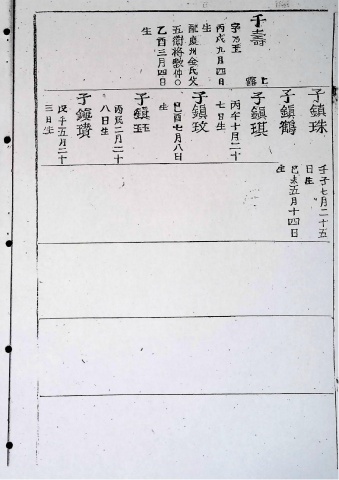 千壽
上
字乃玉
丙戌九月四日
生
配慶州金氏父
五衛將敬仲
乙酉三月四日
生
子鎭珠
壬子七月二十五
日生
子鎭鶴
己未五月十四日
生
子鎭琪
丙午十月二十
七日生
子鎭玟
己酉七月八日
生
子鎭玨
丙辰二月二十
八日生
子鎭璜
戊午五月二十
三日生